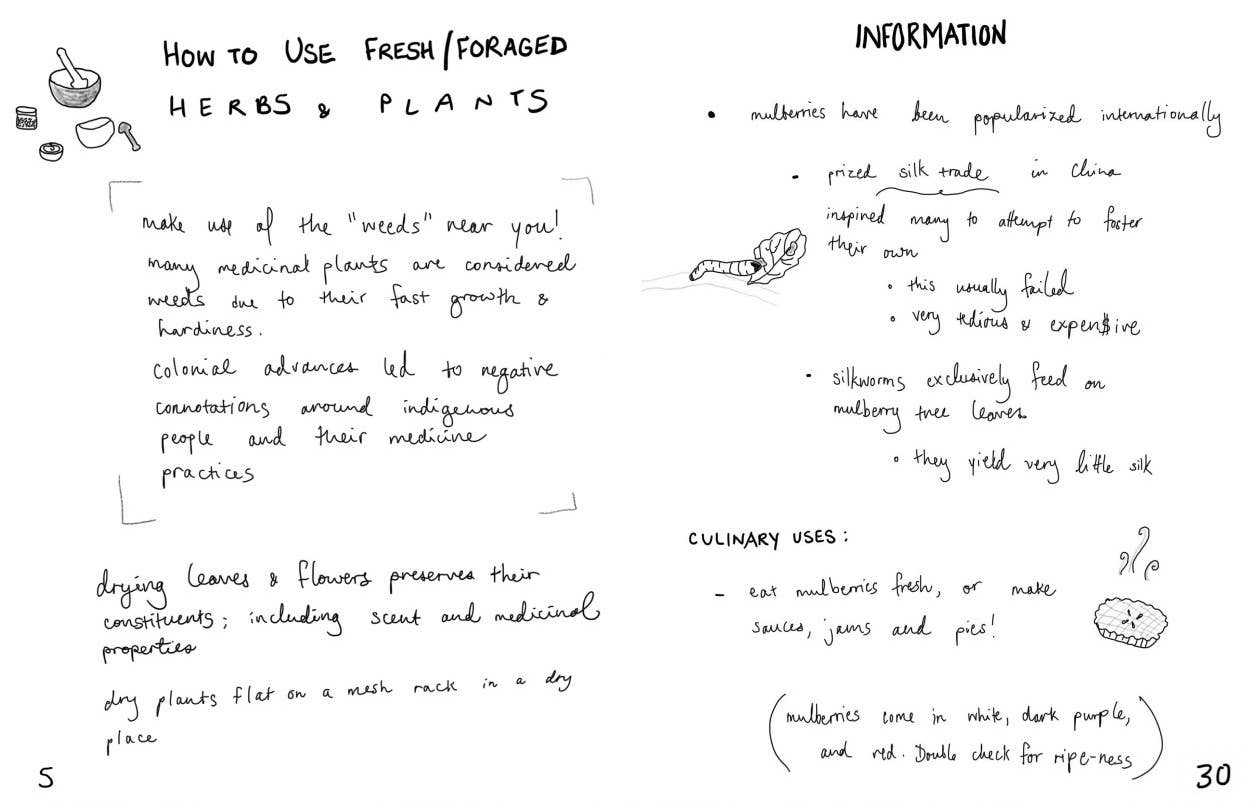 HOW TO USE FRESH/FORAGED
HERBS & PLANTS
make use of the "weeds" near you!
many medicinal plants are considered
weeds due to their fast growth &
hardiness.
colonial advances led to negative
connotations around indigenous
people and their medicine
practices
drying leaves & flowers preserves their
constituents; including scent and medicinal
properties
dry plants flat on a mesh rack in a dry
place
5
INFORMATION
• mulberries have been popularized internationally
• prized silk trade in China
inspired many to attempt to foster
their own
• this usually failed
• very tedious & expen$ive
• silkworms exclusively feed on
mulberry tree leaves
• they yield very little silk
CULINARY USES:
- eat mulberries fresh, or make
sauces, jams and pies!
(mulberries come in white, dark purple,
and red. Double check for ripe-ness)
30